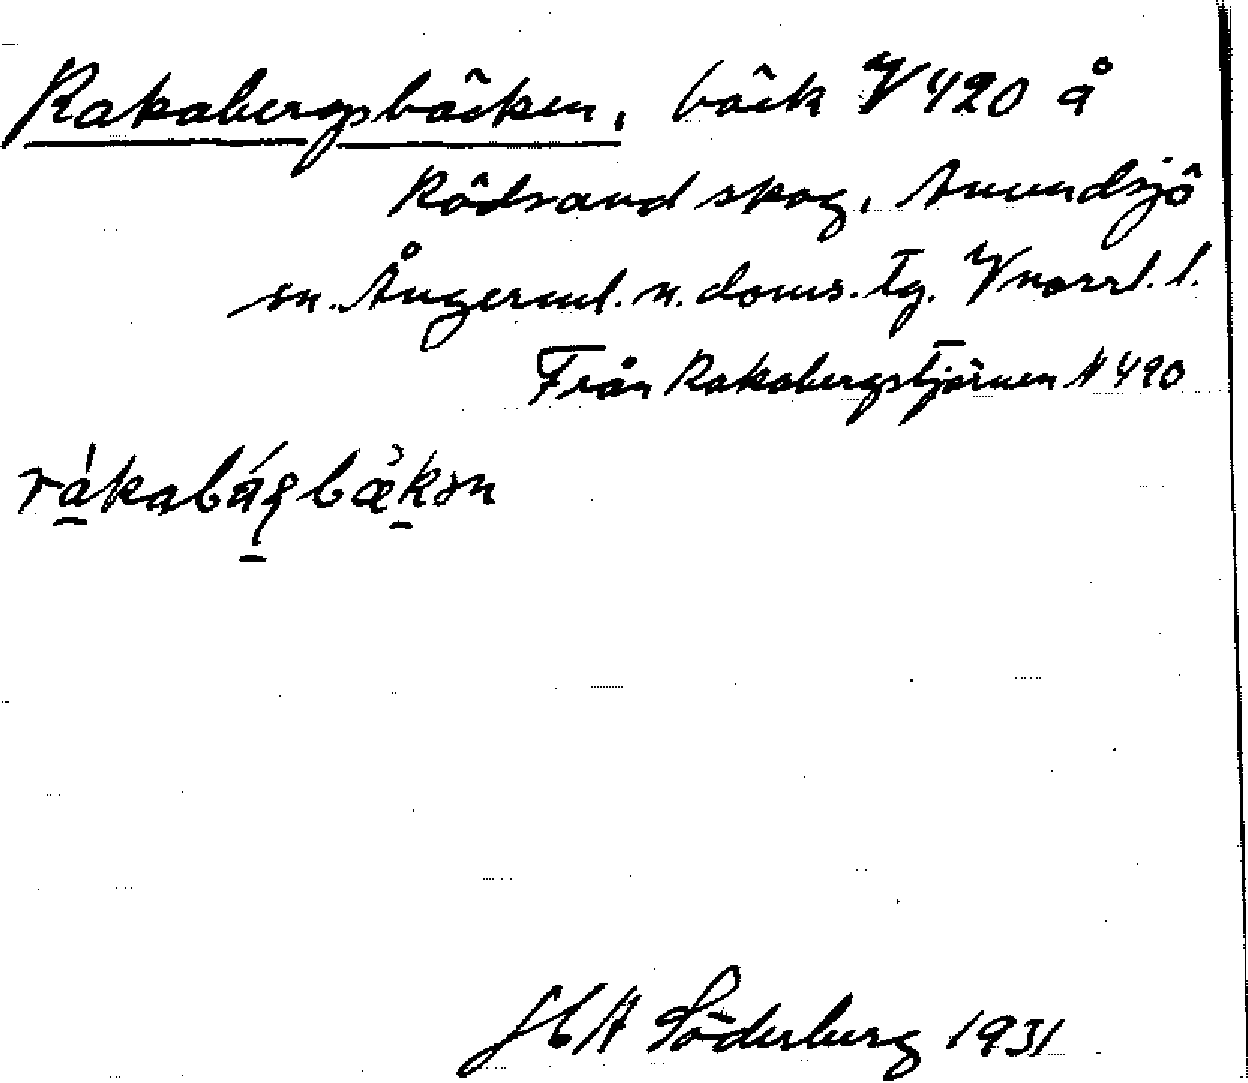 Rakabergsbäcken, bäck V 420 å
Rödsand skog, Anundsjö
sn. Ångerml. n. doms. tg. Vnorrl. l.
Från Rakabergstjärnen N 420
råkabágbækən
Söderberg 1931